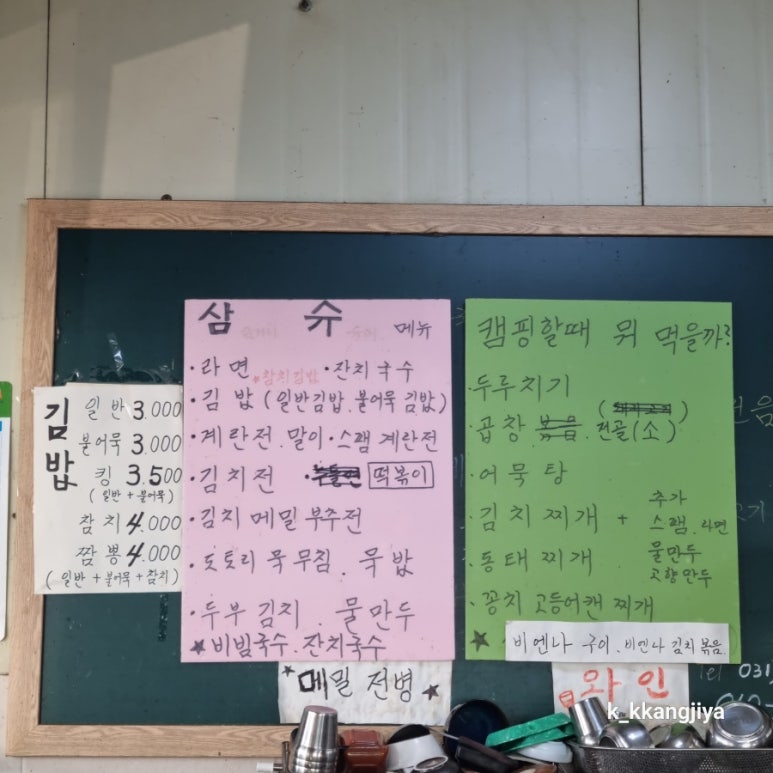 김밥
일반 3.000
불어묵 3.000
킹 3.500
(일반 + 불어묵)
참치 4.000
짬뽕 4.000
(일반 + 불어묵 + 참치)
삼 슈 메뉴
·라면 ·잔치국수
★참치김밥
·김밥 (일반김밥. 불어묵 김밥)
·계란전. 말이 ·스팸 계란전
·김치전 · 떡볶이
·김치 메밀 부추전
·도토리 묵 무침. 묵밥
·두부 김치. 물만두
★비빔국수. 잔치국수
★메밀 전병★
캠핑할때 뭐 먹을까?
·두루치기
·곱창 볶음 전골(소)
·어묵탕
·김치찌개 + 추가
스팸. 라면
물만두
고향만두
·동태찌개
·꽁치 고등어캔 찌개
★ 비엔나 구이. 비엔나 김치 볶음
와인
Tel 031
k_kkangjiya